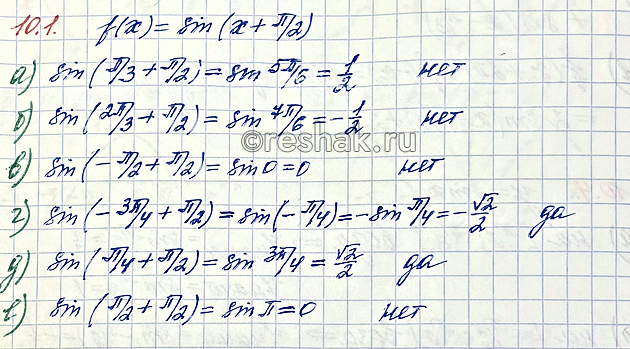 10.1. f(x) = sin(x + π/2)
а) sin(π/3 + π/2) = sin 5π/6 = 1/2 нет
б) sin(2π/3 + π/2) = sin 7π/6 = -1/2 нет
©reshak.ru
в) sin(-π/2 + π/2) = sin 0 = 0 нет
г) sin(-3π/4 + π/2) = sin(-π/4) = -sin π/4 = -√2/2 да
д) sin(π/4 + π/2) = sin 3π/4 = √2/2 да
е) sin(π/2 + π/2) = sin π = 0 нет